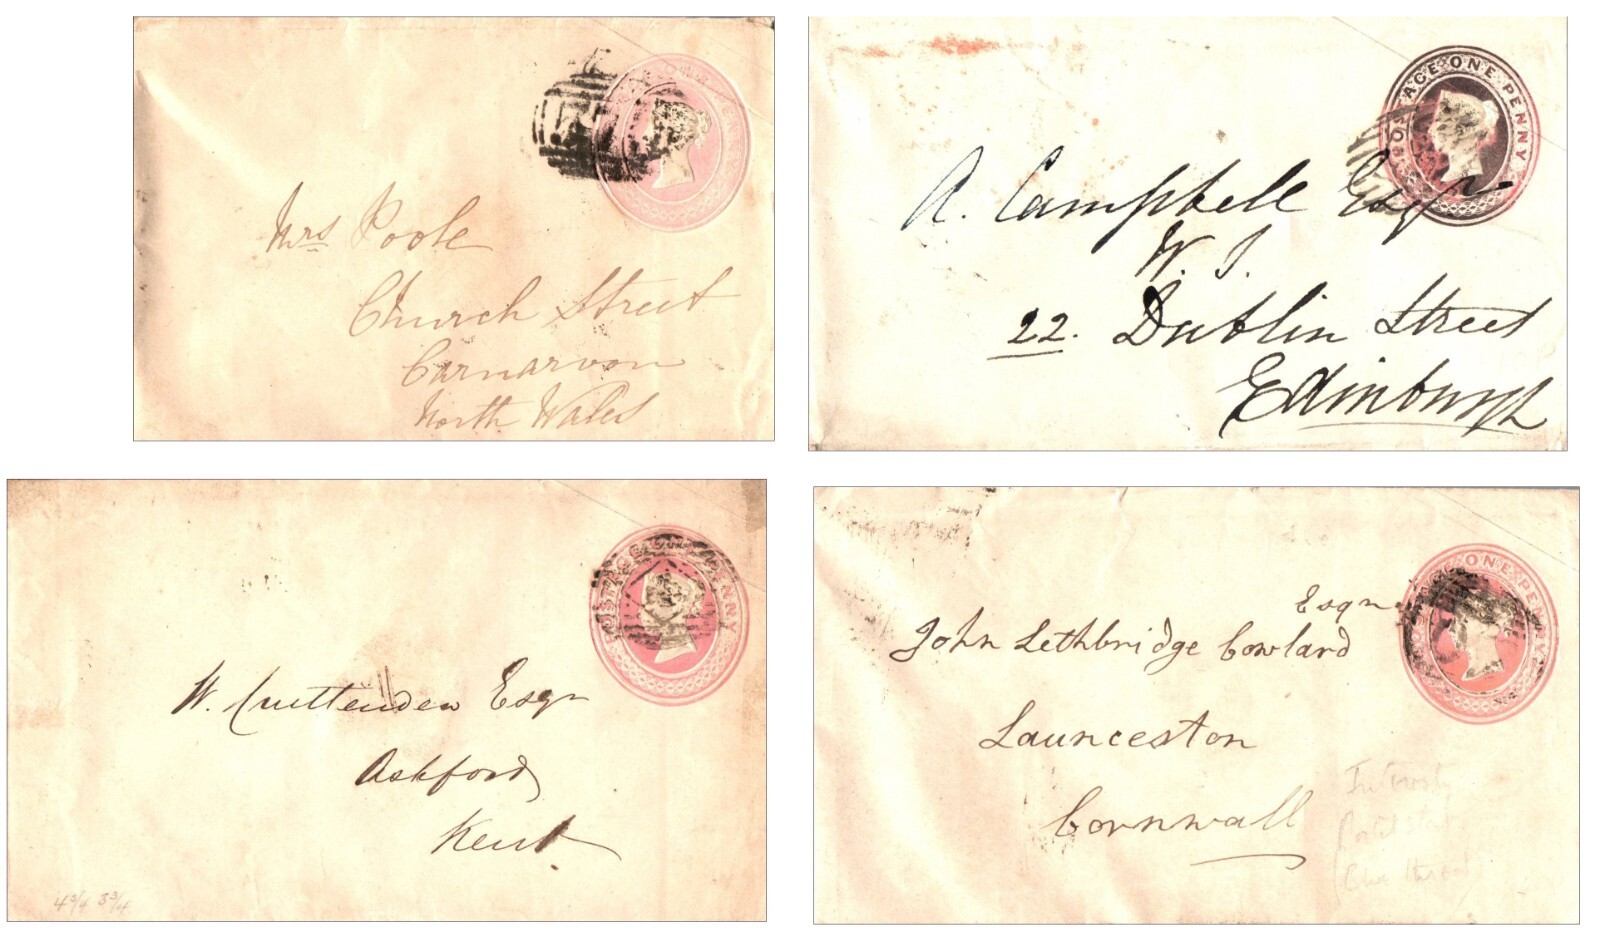 Mrs Poole
Church Street
Carnarvon
North Wales
POSTAGE ONE PENNY
A. Campbell Esqr
W. S.
22. Dublin Street
Edinburgh
POSTAGE ONE PENNY
W. Cruttenden Esqr
Ashford
Kent
4 3/4 3 3/4
ONE PENNY
Esqr
John Lethbridge Cowlard
Launceston
Cornwall